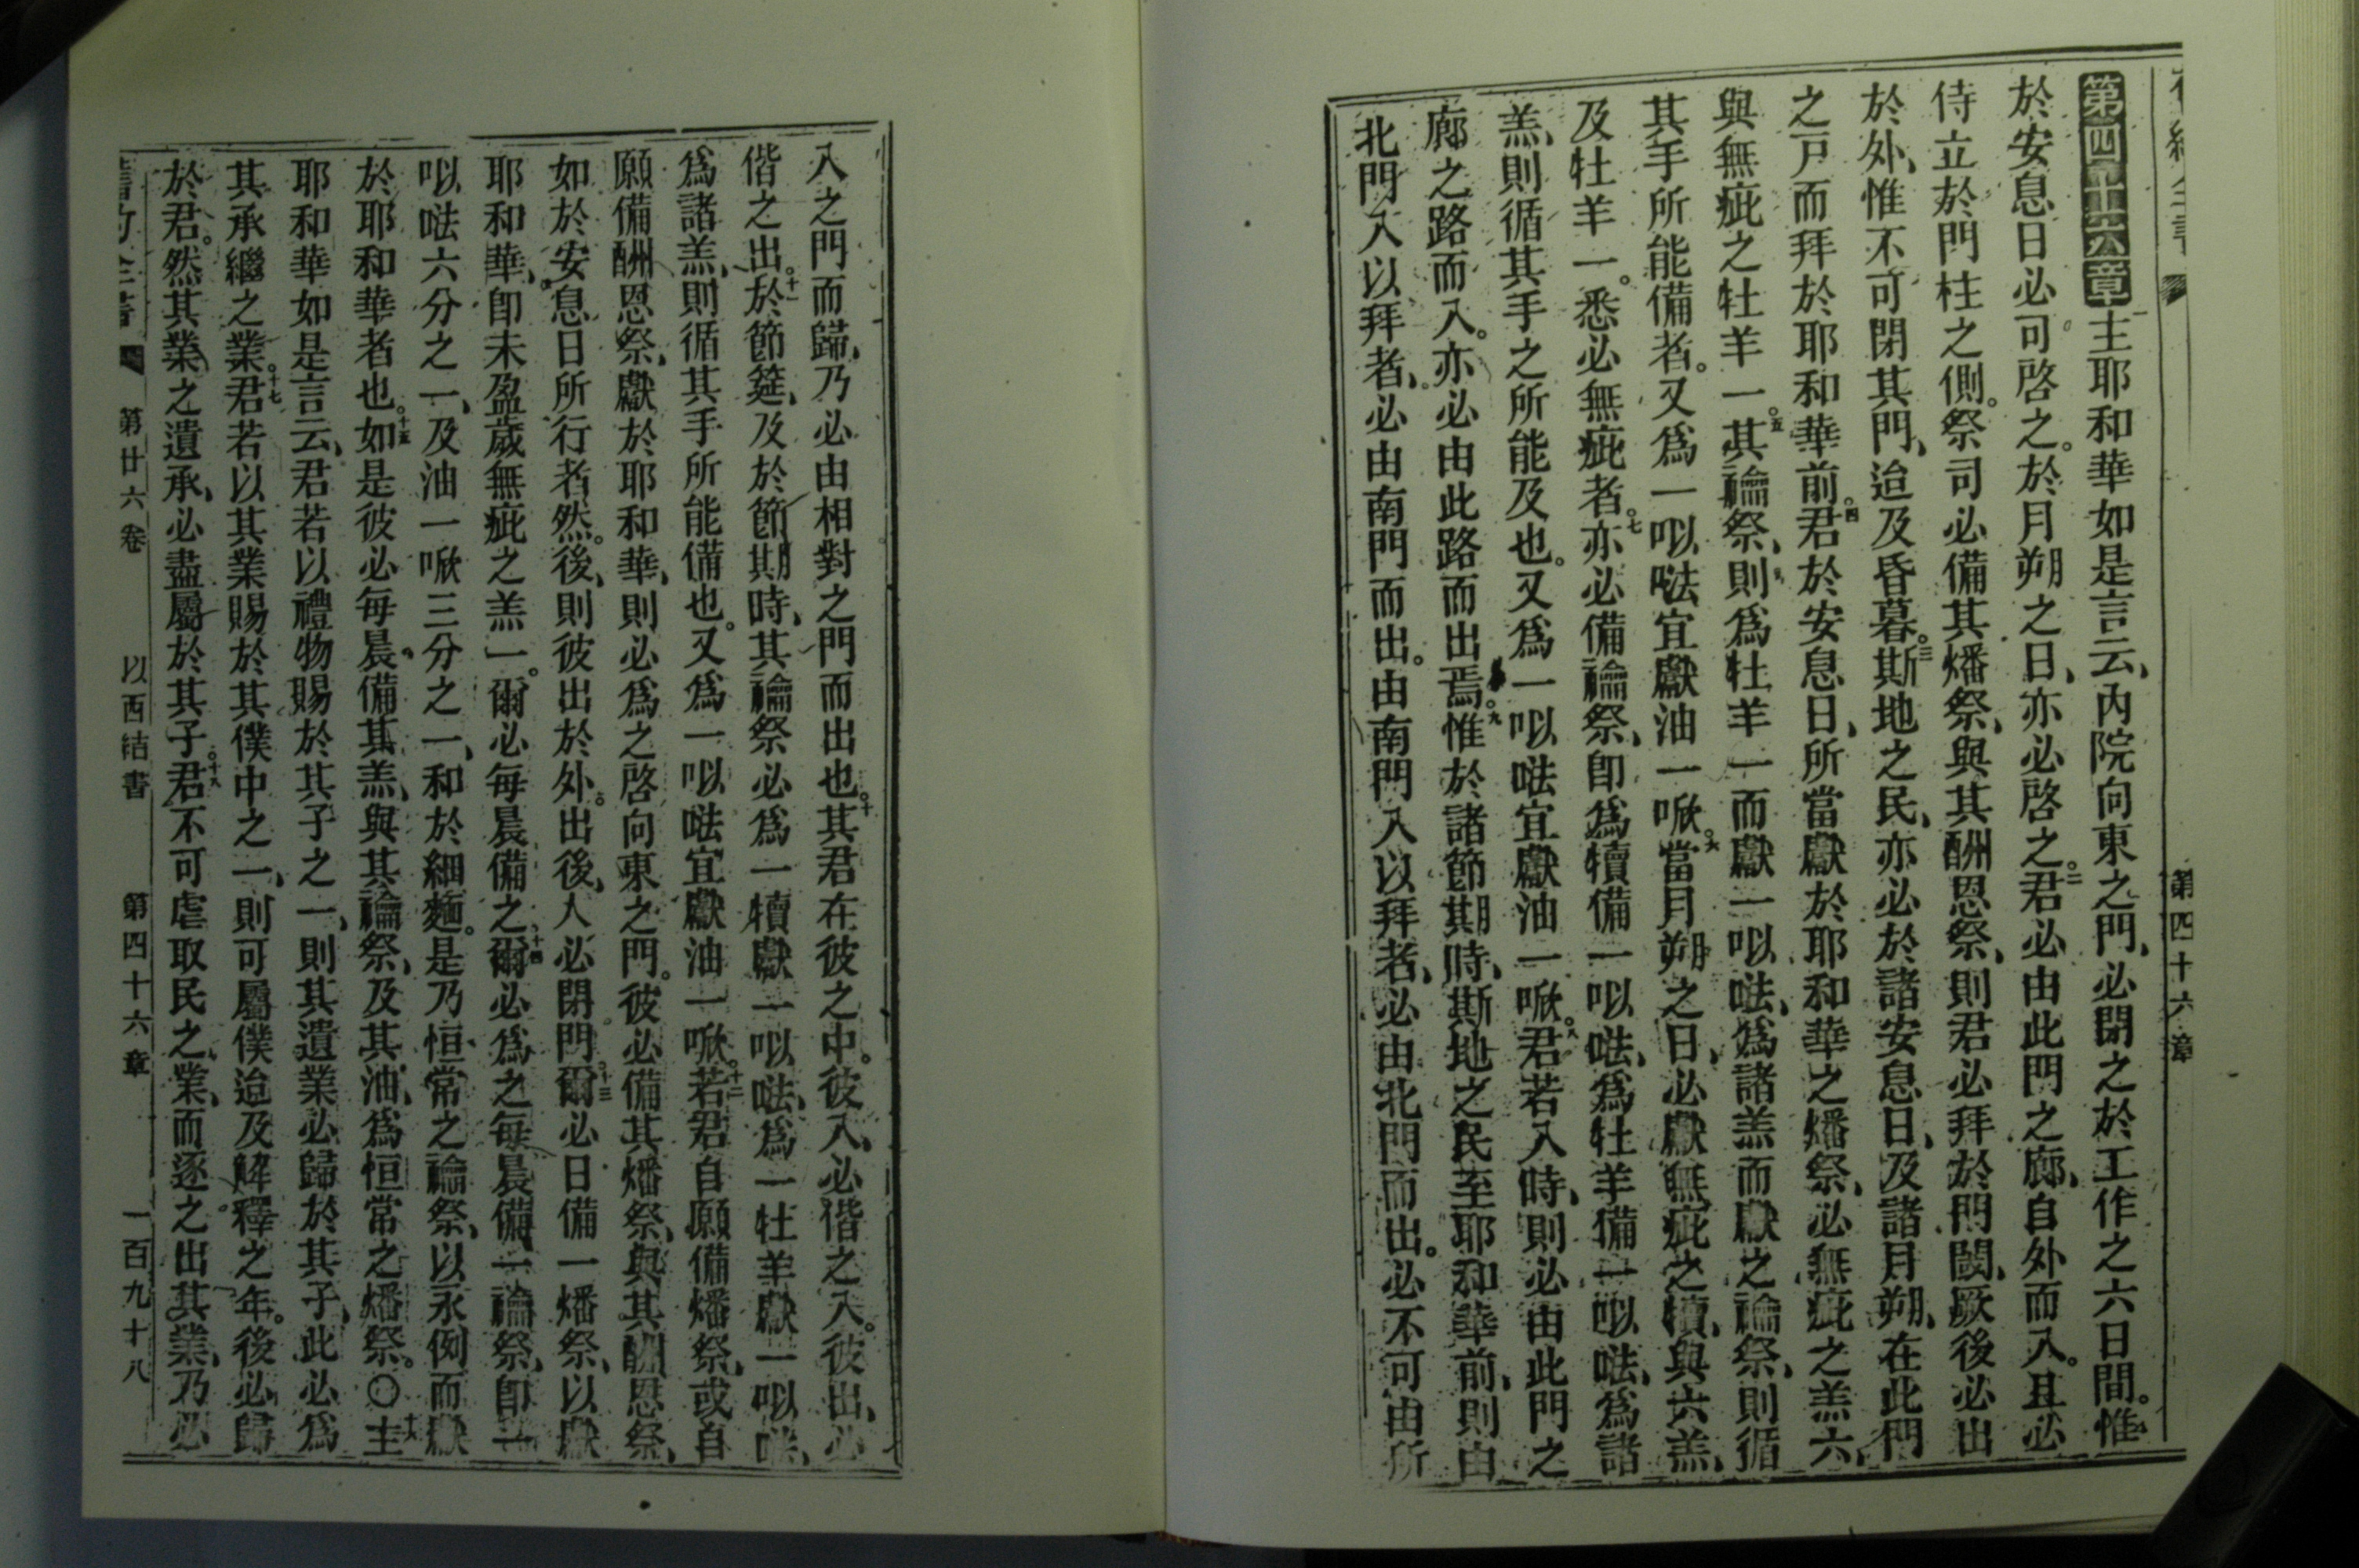 第四十六章
第四十六章主耶和華如是言云、內院向東之門、必閉之於工作之六日間。惟
於安息日必可啓之。於月朔之日、亦必啓之。二君必由此門之廊、自外而入。且必
侍立於門柱之側。祭司必備其燔祭、與其酬恩祭、則君必拜於門閾、厥後必出
於外、惟不可閉其門、迨及昏暮。三斯地之民、亦必於諸安息日、及諸月朔、在此門
之戸而拜於耶和華前。四君於安息日、所當獻於耶和華之燔祭、必無疵之羔六、
與無疵之牡羊一。五其禴祭、則爲牡羊一而獻一㕥𠵽、爲諸羔而獻之禴祭、則循
其手所能備者。又爲一㕥𠵽宜獻油一㗿。六當月朔之日、必獻無疵之犢、與六羔、
及牡羊一。悉必無疵者。七亦必備禴祭、卽爲犢備一㕥𠵽、爲牡羊備一㕥𠵽、爲諸
羔、則循其手之所能及也。又爲一㕥𠵽宜獻油一㗿。八君若入時、則必由此門之
廊之路而入。亦必由此路而出焉。九惟於諸節期時、斯地之民至耶和華前、則由
北門入以拜者、必由南門而出。由南門入以拜者、必由北門而出。必不可由所
入之門而歸、乃必由相對之門而出也。十其君在彼之中。彼入、必偕之入。彼出、必
偕之出。十一於節筵、及於節期時、其禴祭必爲一犢獻一㕥𠵽、爲一牡羊獻一㕥𠵽、
爲諸羔、則循其手所能備也。又爲一㕥𠵽宜獻油一㗿。十二若君自願備燔祭、或自
願備酬恩祭、獻於耶和華、則必爲之啓向東之門。彼必備其燔祭、與其酬恩祭、
如於安息日所行者然。後、則彼出於外。出後、人必閉門。十三爾必日備一燔祭、以獻
耶和華、卽未盈歲無疵之羔一。爾必每晨備之、十四爾必爲之每晨備一禴祭、卽一
㕥𠵽六分之一、及油一㗿三分之一、和於細麵。是乃恒常之禴祭、以永例而獻
於耶和華者也。十五如是彼必每晨備其羔、與其禴祭、及其油、爲恒常之燔祭。〇十六主
耶和華如是言云、君若以禮物賜於其子之一、則其遺業必歸於其子、此必爲
其承繼之業。十七君若以其業賜於其僕中之一、則可屬僕迨及解釋之年。後必歸
於君。然其業之遺承、必盡屬於其子。十八君不可虐取民之業、而逐之出其業、乃必
第廿六卷 以西結書 第四十六章 一百九十八